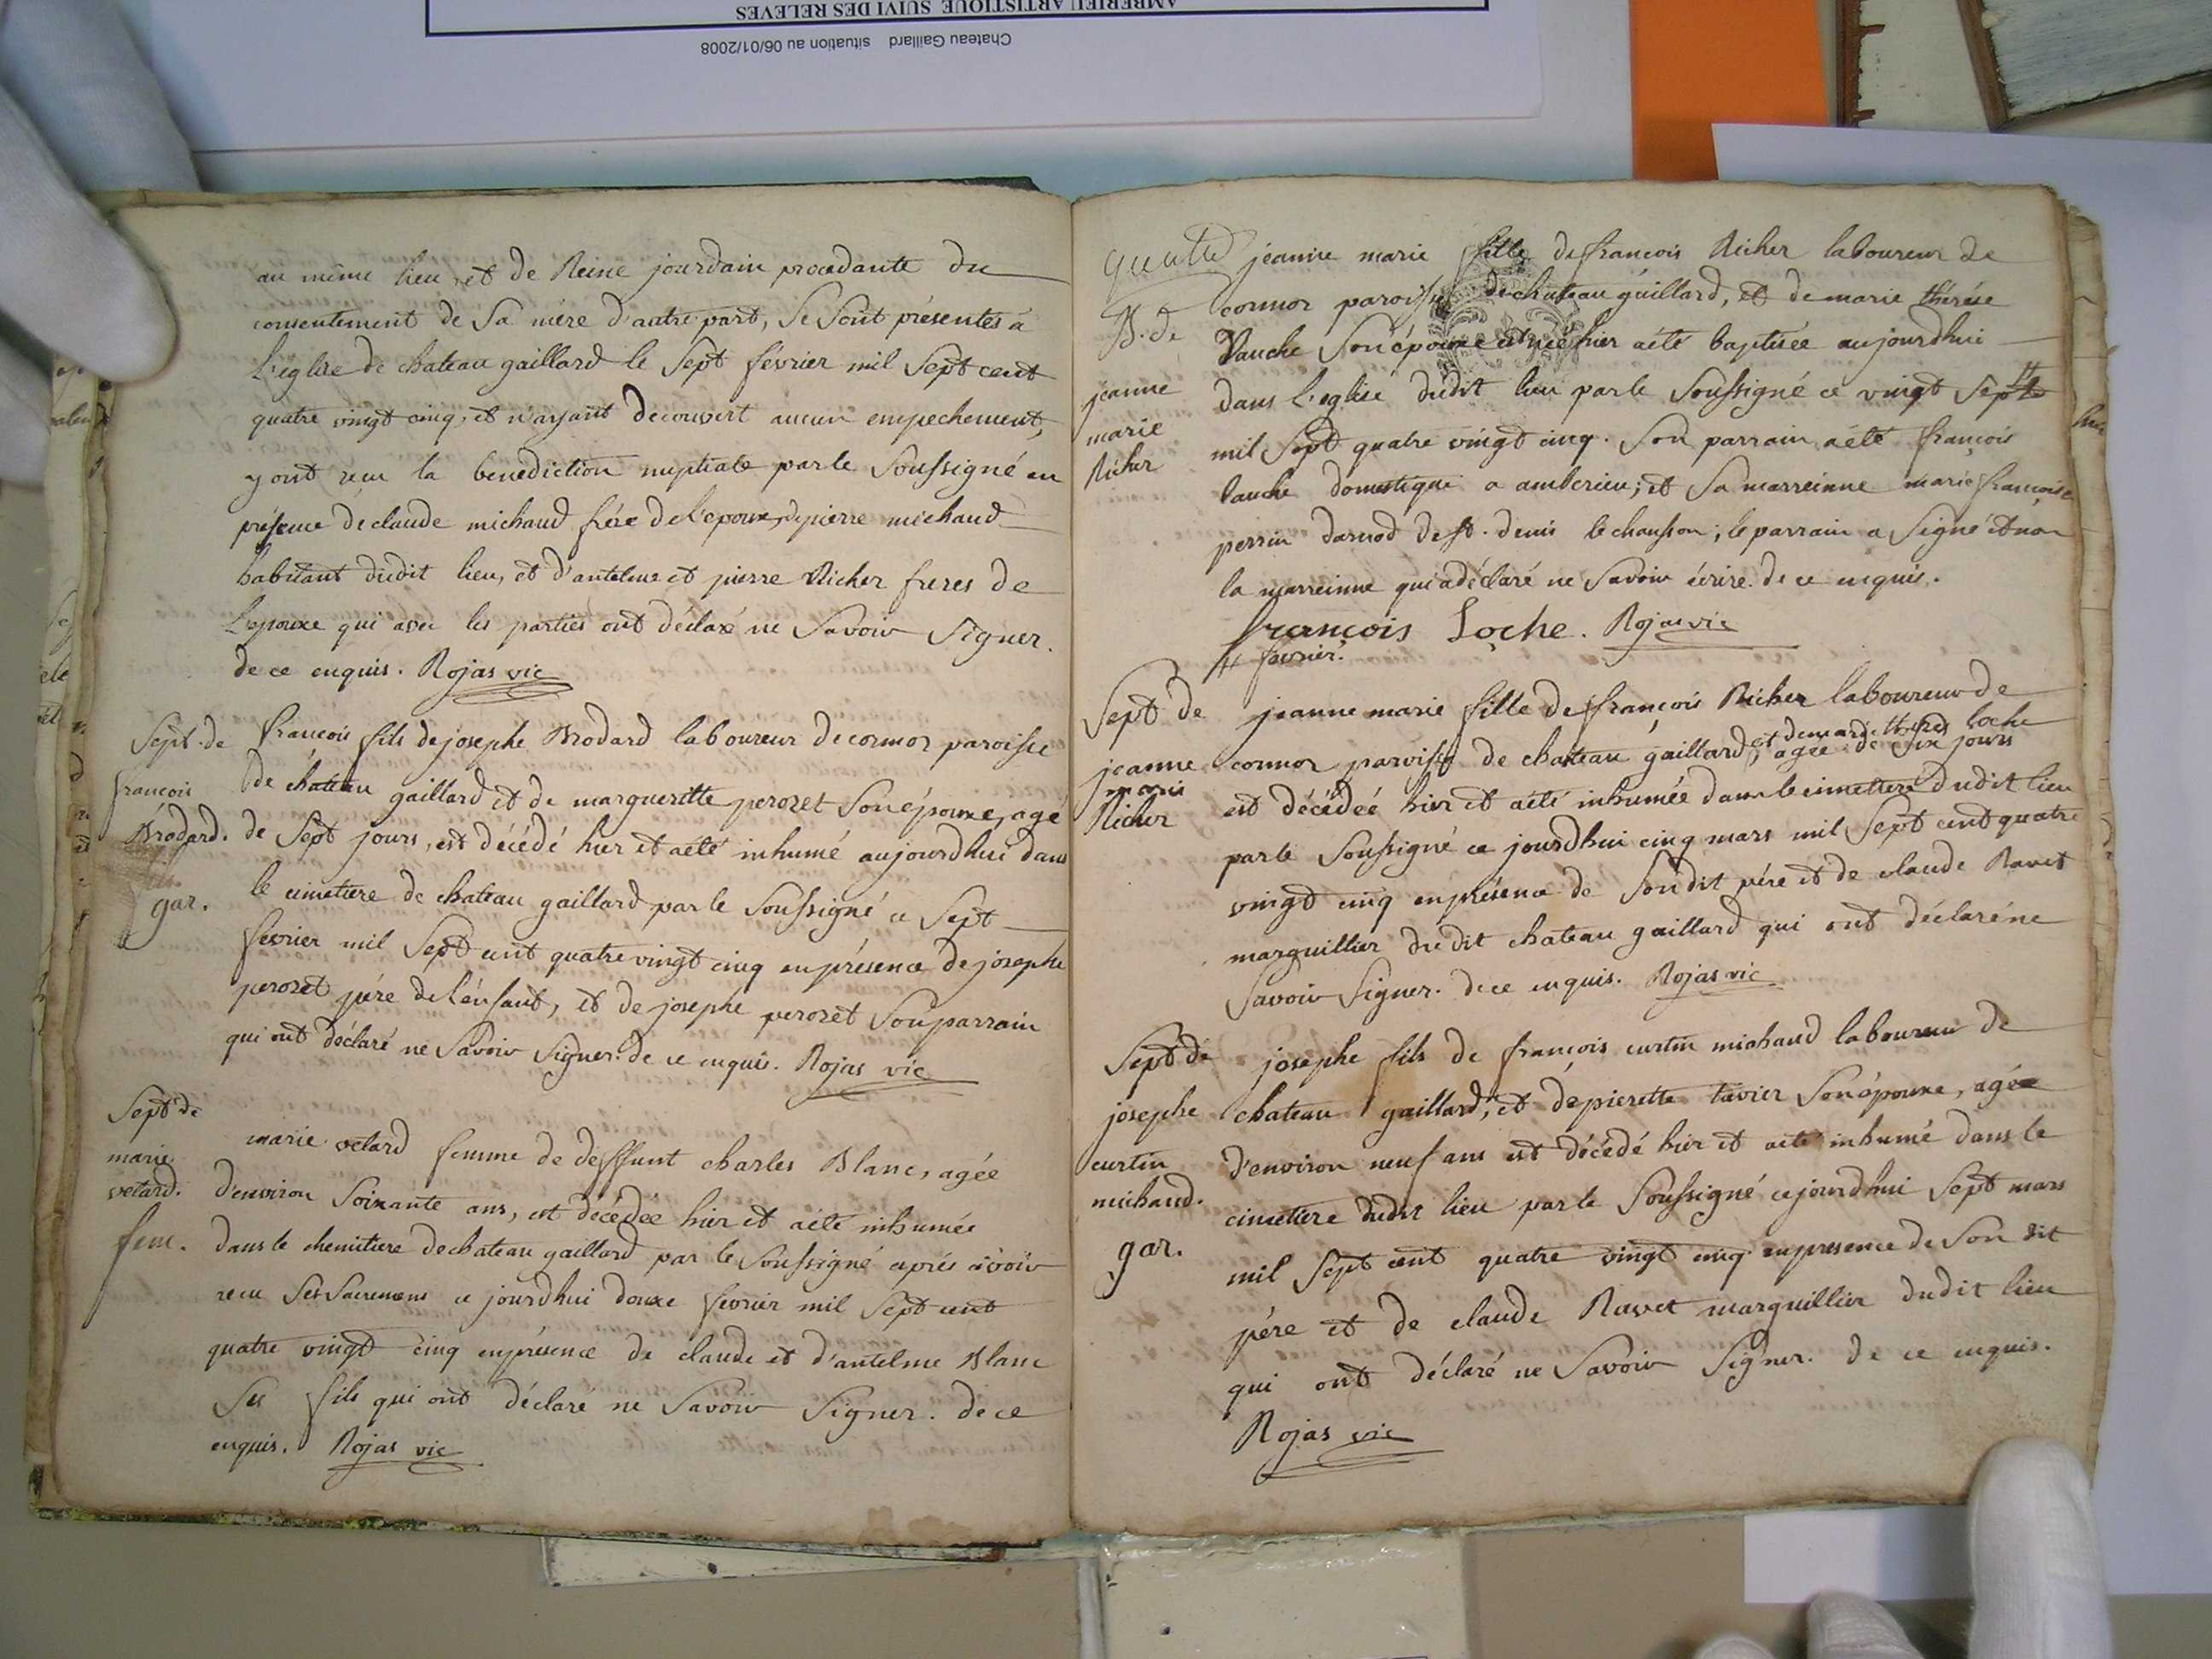 AMBERIEU ARTISTIQUE SUIVI DES RELEVES
Chateau Gaillard situation au 06/01/2008
au même lieu, et de Reine jourdain procedante du
consentement de Sa mére d'autre part, Se Sont présentés à
L'église de chateau gaillard le Sept fevrier mil Sept cent
quatre vingt cinq, et n'ayant decouvert aucun empechement,
y ont recu la benediction nuptiale par le Soussigné en
présence de claude michaud frére de l'epoux, de pierre michaud
habitant dudit lieu, et d'antelme et pierre Richer freres de
L'epouxe qui avec les parties ont déclaré ne Savoir Signer.
de ce enquis. Rojas vic
Sept. de
francois
Brodard.
gar.
francois fils de josephe Brodard laboureur de cormoz paroisse
de chateau gaillard et de margueritte perozet Son épouxe, agé
de Sept jours, est décédé hier et a été inhumé aujourdhui dans
le cimetiere de chateau gaillard par le Soussigné ce Sept
fevrier mil Sept cent quatre vingt cinq en présence de josephe
perozet pére de l'enfant, et de josephe perozet Son parrain
qui ont déclaré ne Savoir Signer. de ce enquis. Rojas vic
Sept. de
marie
vetard.
fem.
marie vetard femme de deffunt charles Blanc, agée
d'environ Soixante ans, est décédée hier et a été inhumée
dans le chemitiere de chateau gaillard par le Soussigné aprés avoir
recu Ses Sacremens ce jourdhui douxe fevrier mil Sept cent
quatre vingt cinq en présence de claude et d'antelme Blanc
Ses fils qui ont déclaré ne Savoir Signer. de ce
enquis. Rojas vic
quatre
B. de
jeanne
marie
Richer
jeanne marie fille de francois Richer laboureur de
cormoz paroisse de chateau gaillard, et de marie thérése
Lauche Son épouxe est née hier a été baptisée aujourdhui
dans L'eglise dudit lieu par le Soussigné ce vingt Sept #
mil Sept quatre vingt cinq. Son parrain a été francois
Lauche domestique a amberieu, et Sa marreinne marie francoise
perrin darnod de St. denis le chausson; le parrain a Signé et non
la marreinne qui a déclaré ne Savoir écrire. de ce enquis.
françois Loche. Rojas vic
# fevrier.
Sept de
jeanne
marie
Richer
jeanne marie fille de francois Richer laboureur de
et de marie thérés loche
cormoz paroisse de chateau gaillard, agée de Six jours
est décédeé hier et a été inhumée dans le cimettiere dudit lieu
par le Soussigné ce jourdhui cinq mars mil Sept cent quatre
vingt cinq en présence de Son dit pére et de claude Ravet
marguillier dudit chateau gaillard qui ont déclaré ne
Savoir Signer. de ce enquis. Rojas vic
Sept de
josephe
curtin
michaud.
gar.
josephe fils de francois curtin michaud laboureur de
chateau gaillard, et de pierette tavier Son épouxe, agée
d'environ neuf ans est décédé hier et a été inhumé dans le
cimetiere dudit lieu par le Soussigné ce jourdhui Sept mars
mil Sept cent quatre vingt cinq en presence de Son dit
pére et de claude Ravet marguillier dudit lieu
qui ont déclaré ne Savoir Signer. de ce enquis.
Rojas vic